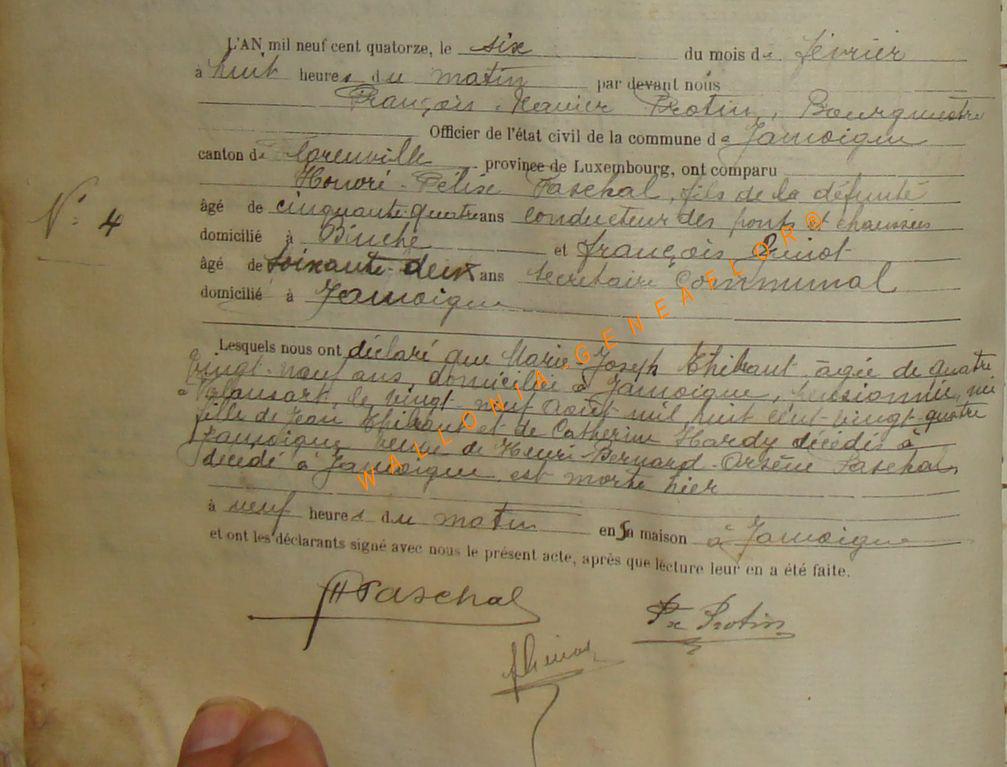 L'AN mil neuf cent quatorze, le six du mois de février
à huit heures du matin par devant nous
François Xavier Protin, Bourgmestre
Officier de l'état civil de la commune de Jamoigne
canton de Florenville province de Luxembourg, ont comparu
Honoré-Félix Paschal, fils de la défunte
N° 4
âgé de cinquante quatre ans conducteur des ponts et chaussées
domicilié à Binche et François
âgé de soixante-deux ans Secrétaire Communal
domicilié à Jamoigne
Lesquels nous ont déclaré que Marie-Joseph Thibaut, âgée de quatre
vingt-neuf ans, domiciliée à Jamoigne, pensionnée, née
à Valansart, le vingt neuf Août mil huit cent vingt-quatre
fille de Jean Thibaut et de Catherine Hardy décédés à
Jamoigne, veuve de Henri-Bernard-Arsène Paschal,
décédé à Jamoigne est morte hier
à neuf heures du matin en sa maison à Jamoigne
et ont les déclarants signé avec nous le présent acte, après que lecture leur en a été faite.
HPaschal
Fx Protin
WALLONIA-GENEAFLOR®